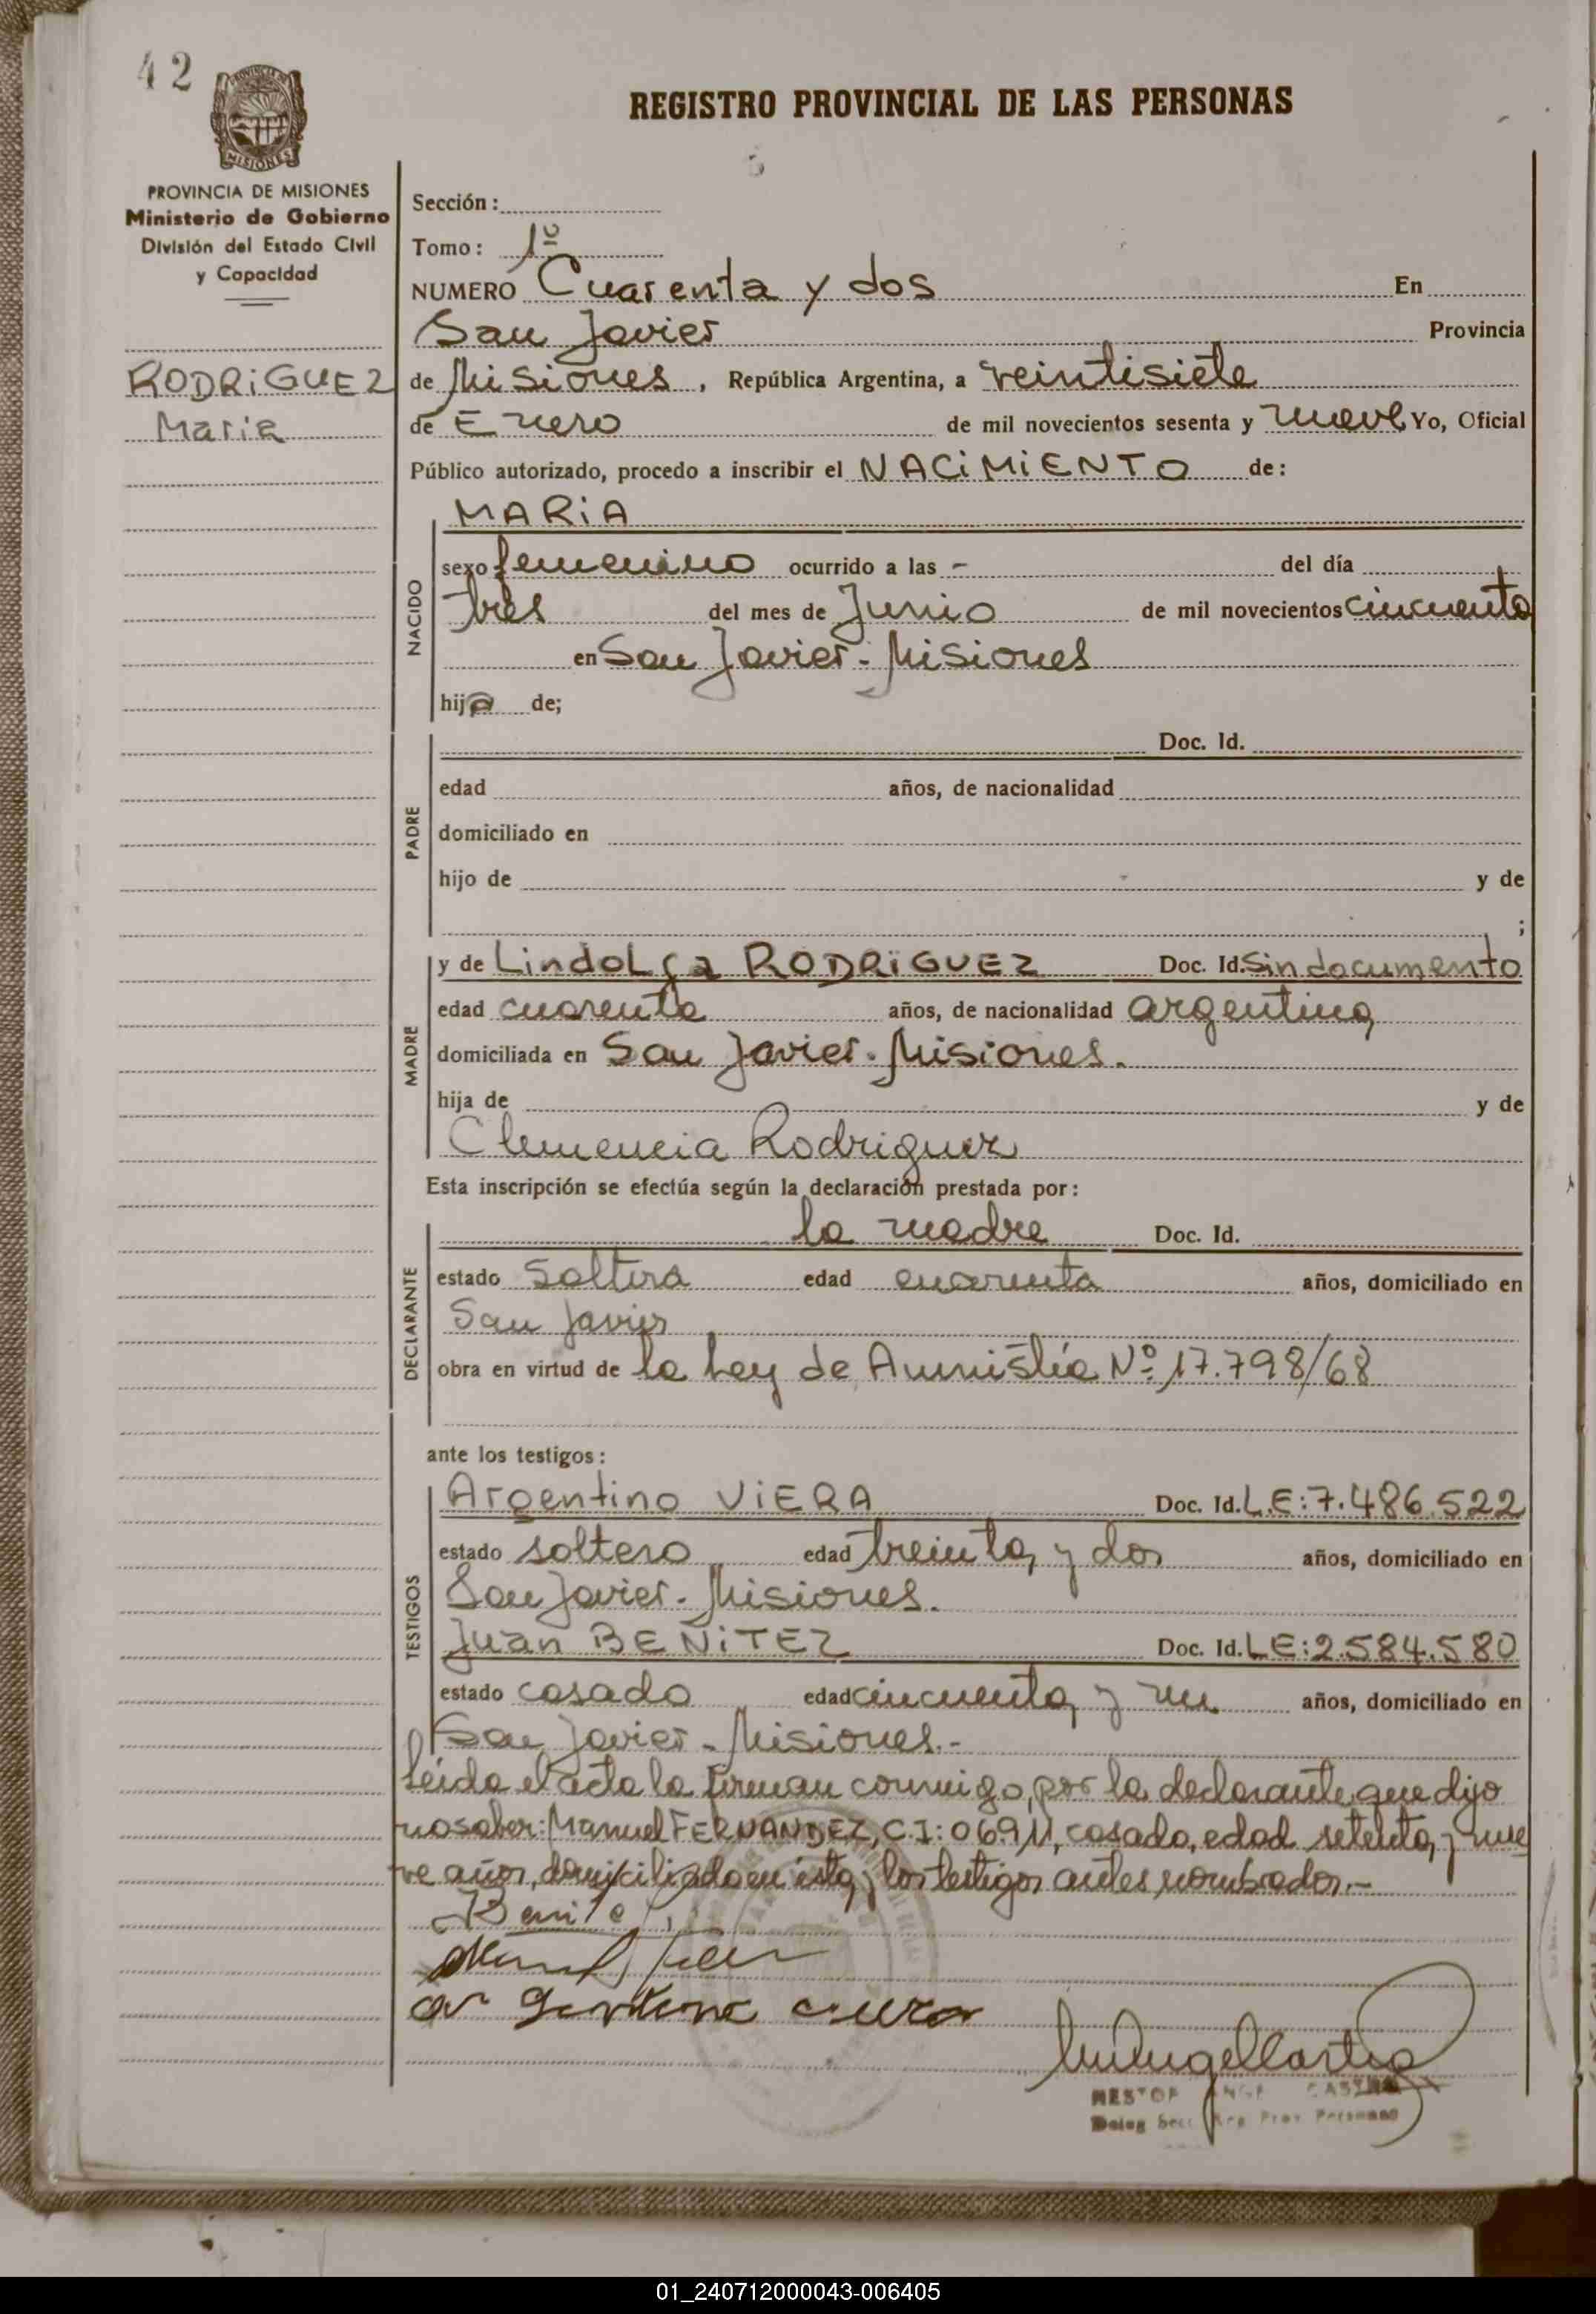 42
REGISTRO PROVINCIAL DE LAS PERSONAS
MISIONES
PROVINCIA DE MISIONES
Ministerio de Gobierno
División del Estado Civil
y Capacidad
RODRiGUEZ
Maria
Sección:
Tomo: 1º
NUMERO Cuarenta y dos En
San Javier Provincia
de Misiones, República Argentina, a veintisiete
de Enero de mil novecientos sesenta y nueve Yo, Oficial
Público autorizado, procedo a inscribir el NACiMiENTO de:
NACIDO
MARiA
sexo femenino ocurrido a las - del día
tres del mes de Junio de mil novecientos cincuenta
en San Javier - Misiones
hija de;
PADRE
Doc. Id.
edad años, de nacionalidad
domiciliado en
hijo de y de
;
MADRE
y de Lindolfa RODRiGUEZ Doc. Id. Sin documento
edad cuarenta años, de nacionalidad argentina
domiciliada en San Javier. Misiones.
hija de y de
Clemencia Rodriguez
Esta inscripción se efectúa según la declaración prestada por:
DECLARANTE
la madre Doc. Id.
estado Soltera edad cuarenta años, domiciliado en
San Javier
obra en virtud de la Ley de Amnistía Nº 17.798/68
ante los testigos:
TESTIGOS
Argentino ViERA Doc. Id. L.E: 7.486.522
estado soltero edad treinta y dos años, domiciliado en
San Javier. Misiones.
Juan BENiTEZ Doc. Id. LE: 2.584.580
estado casado edad cincuenta y un años, domiciliado en
San Javier - Misiones.-
Leída el acta la firman conmigo, por la declarante que dijo
no saber: Manuel FERNANDEZ, C.I: 06911, casado, edad setenta y nue
ve años, domiciliado en ésta y los testigos antes nombrados.-
Benitez
NESTOR ANGEL CASTRO
Deleg Secc Reg Prov Personas
01_240712000043-006405